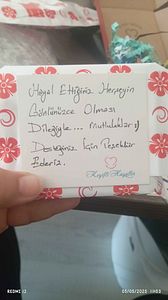 Hayal Ettiğiniz Herşeyin
Gönlünüzce Olması
Dileğiyle... Mutluluklar :)
Desteğiniz İçin Teşekkür
Ederiz.
Keyifli
REDMI 12
05/05/2025 11:53